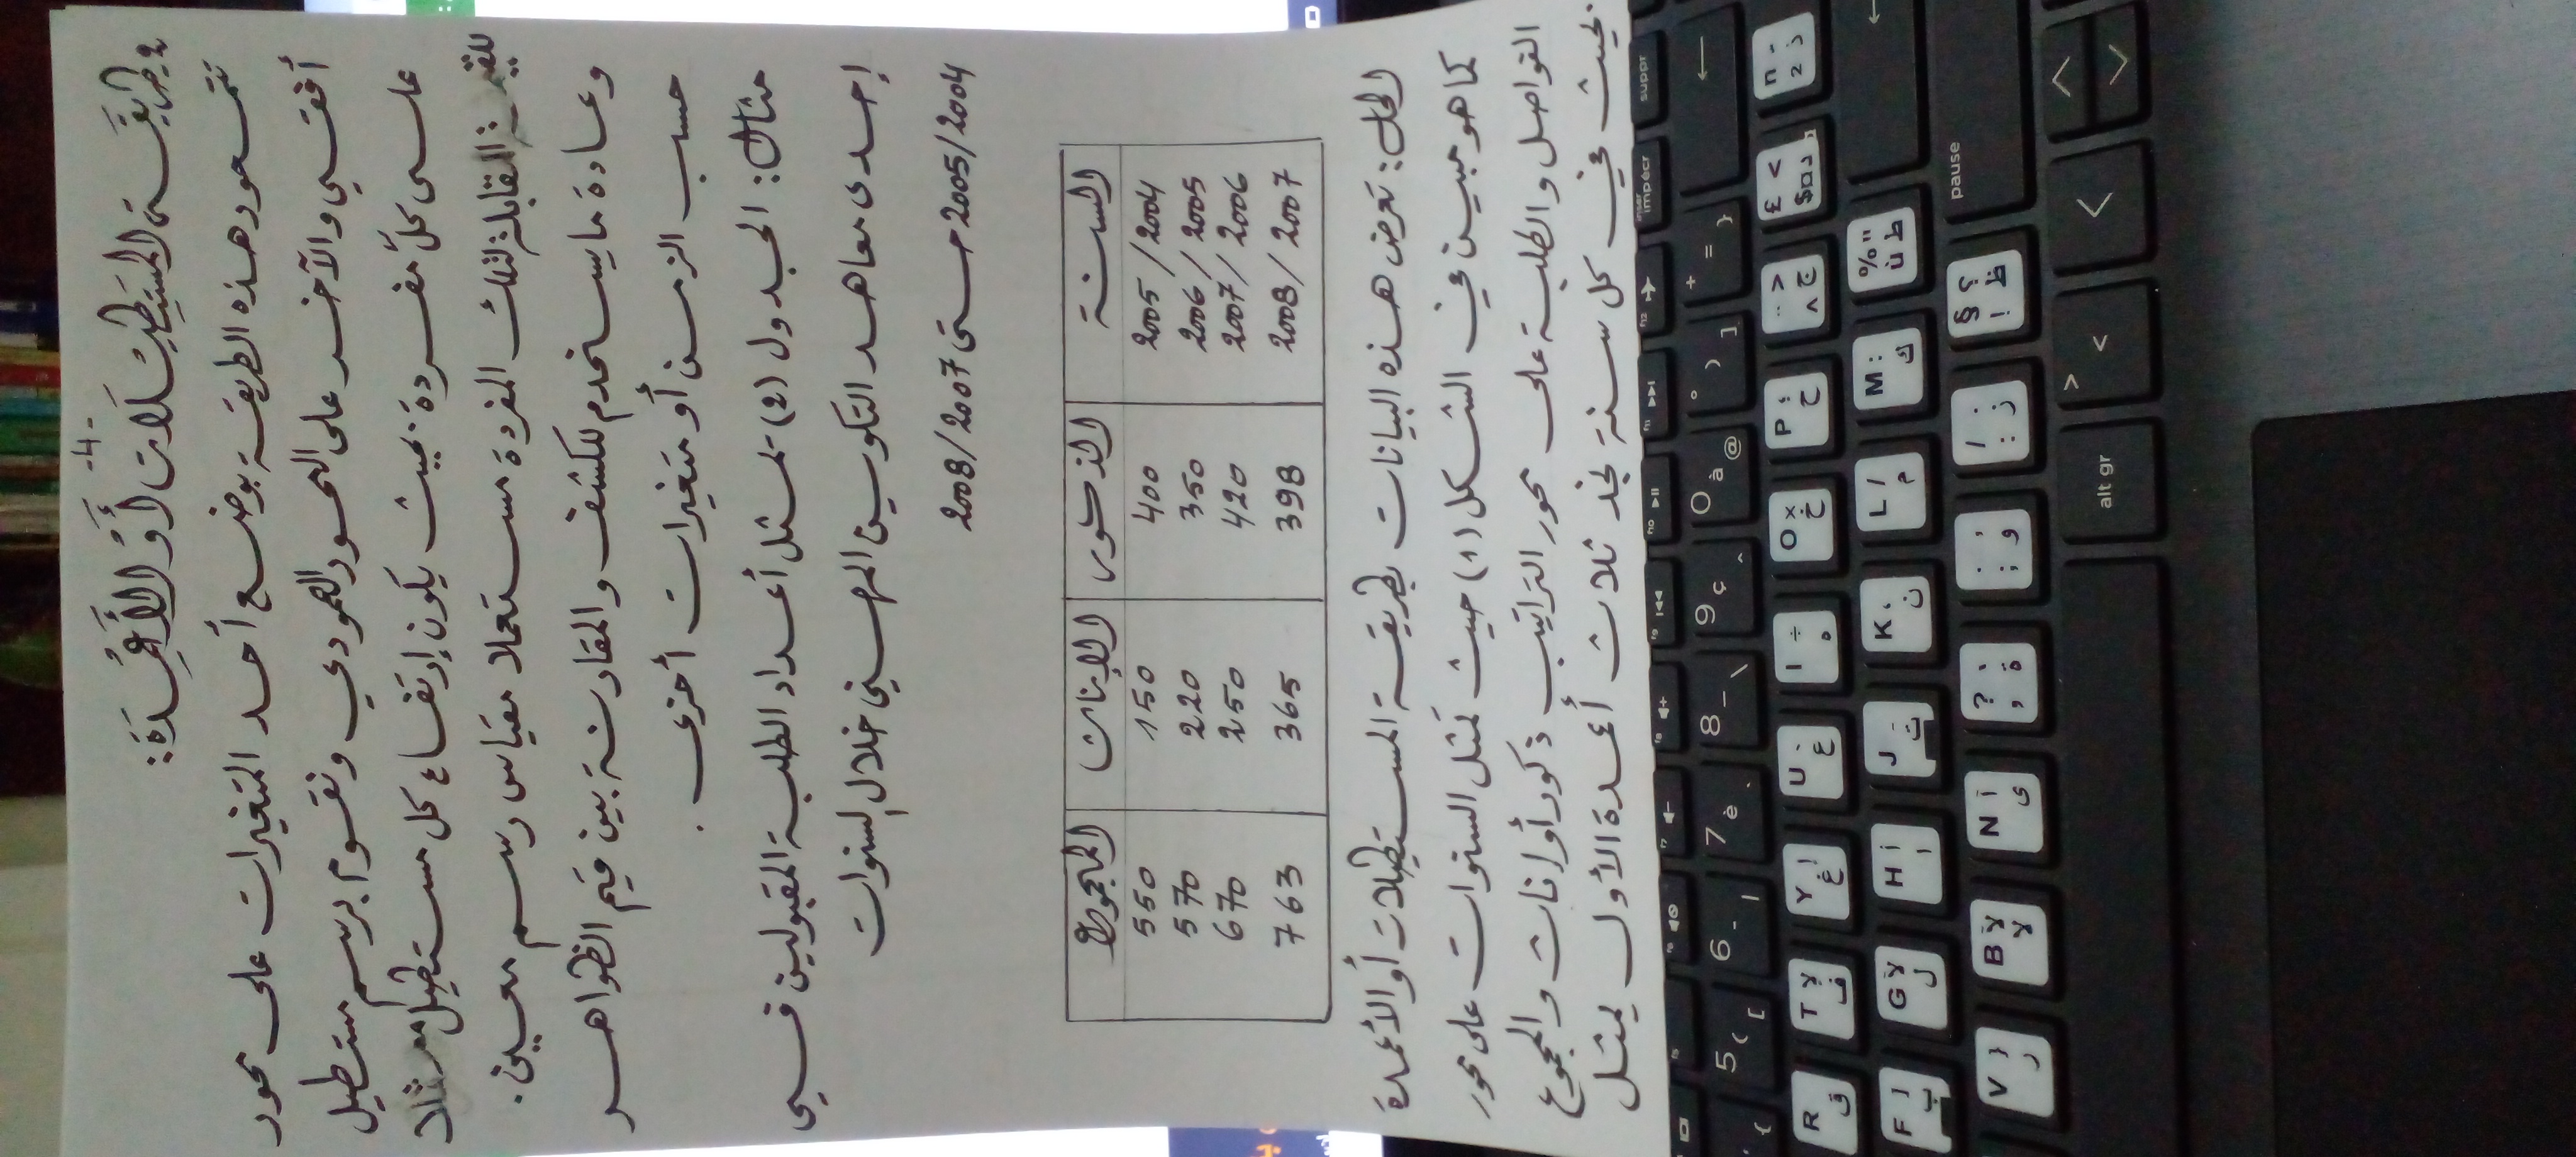 -4-
2 طريقَة المُستَطِيلَات أَوْ الأَعْمِدَة:
تتمحور هذه الطريقة بوضع أحد المتغيرات على محور
أفقي والآخر على المحور العمودي ونقوم برسم مستطيل
على كل مفردة بحيث يكون إرتفاع كل مستطيل ممثلا
للقيمة المقابلة لتلك المفردة مستعملا مقياس رسم معين.
وعادة ما يستخدم للكشف والمقارنة بين قيم الظواهر
حسب الزمن أو متغيرات أخرى.
مثال: الجدول (2) يمثل أعداد الطلبة المقبولين في
إحدى معاهد التكوين المهني خلال لسنوات
2005/2004 حتى 2008/2007
السنة الذكور البنات المجموع
2005/2004 400 150 550
2006/2005 350 220 570
2007/2006 420 250 670
2008/2007 398 365 763
الحل: تعرض هذه البيانات بطريقة المستطيلات أو الأعمدة
كما هو مبين في الشكل (1) حيث تمثل السنوات على محور
الفواصل والطلبة على محور التراتيب ذكور أو إناث والمجموع
بحيث في كل سنة نجد ثلاث أعمدة الأول يمثل
suppr
inser
impécr
pause
alt gr